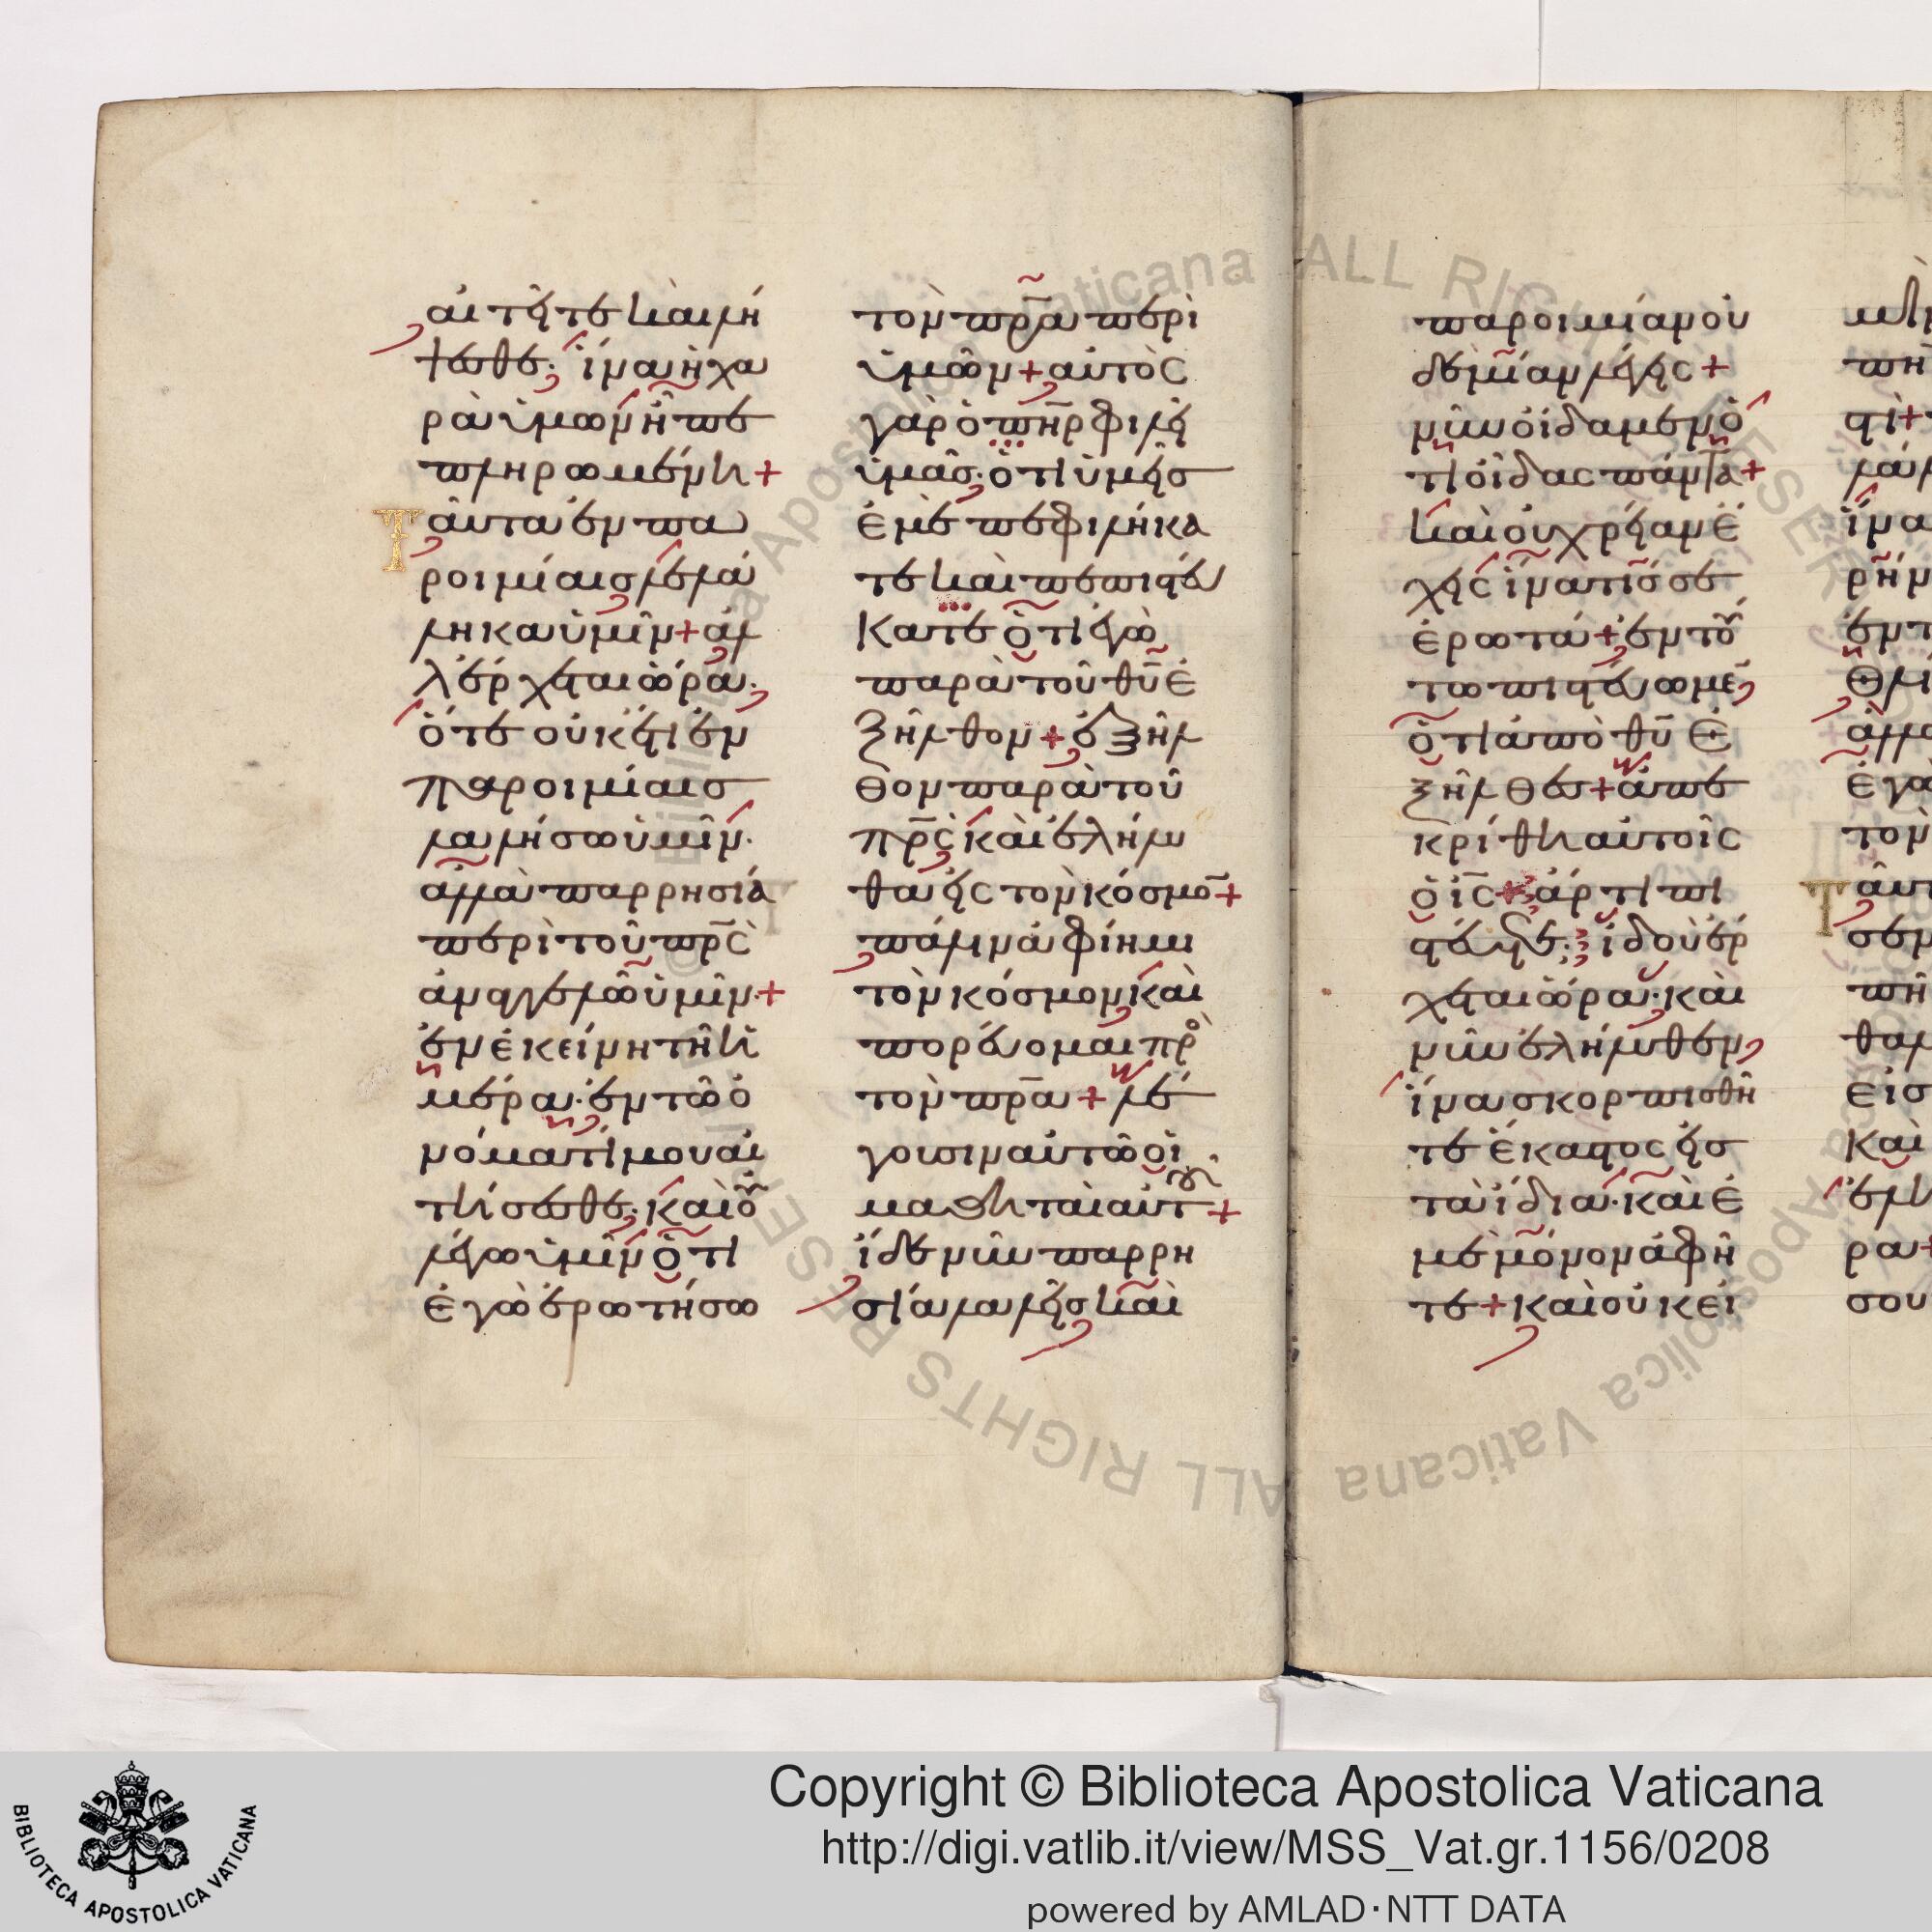 αἰτῆτε καὶ λή
ψεσθε· ἵνα ἡ χα
ρὰ ὑμῶν ἦ πε
πληρωμένη +
Ταῦτα ἐν πα
ροιμίαις λελά
ληκα ὑμῖν + ἀλ
λ' ἔρχεται ὥρα·
ὅτε οὐκ ἔτι ἐν
παροιμίαις
λαλήσω ὑμῖν·
ἀλλὰ παρρησία
περὶ τοῦ πρ̅ς
ἀναγγελῶ ὑμῖν· +
ἐν ἐκείνη τῆ ἡ
μέρα· ἐν τῶ ὀ
νόματί μου αἰ
τήσεσθε· καὶ οὐ
λέγω ὑμῖν ὅτι
ἐγὼ ἐρωτήσω
τὸν πρ̅α περὶ
ὑμῶν + αὐτὸς
γὰρ ὁ πη̅ρ φιλεῖ
ὑμᾶς· ὅτι ὑμεῖς
ἐμὲ πεφιλήκα
τε καὶ πεπιστεύ
κατε ὅτι ἐγὼ
παρὰ τοῦ θυ̅ ἐ
ξῆλθον + ἐξῆλ
θον παρὰ τοῦ
πρ̅ς καὶ ἐλήλυ
θα εἰς τὸν κόσμο̅ +
πάλιν ἀφίημι
τὸν κόσμον καὶ
πορεύομαι πρὸ
τὸν πρ̅α + λέ
γουσιν αὐτῶ οἱ
μαθηταὶ αὐτοῦ +
ἴδε νῦν παρρη
σία λαλεῖς καὶ
παροιμίαν οὐ
δεμίαν λέγεις +
νῦν οἴδαμεν ὅ
τι οἶδας πάντα +
καὶ οὐ χρείαν ἔ
χεις ἵνα τίς σε
ἐρωτᾶ + ἐν τού
τω πιστεύωμε̅
ὅτι ἀπὸ θυ̅ ἐ
ξῆλθες + ἀπε
κρίθη αὐτοῖς
ὁ ις̅ + ἄρτι πι
στεύετε· ἰδοὺ ἔρ
χεται ὥρα· καὶ
νῦν ἐλήλυθεν
ἵνα σκορπισθῆ
τε ἕκαστος εἰς
τὰ ἴδια· καὶ ἐ
μὲ μόνον ἀφῆ
τε + καὶ οὐκ εἰ
Copyright © Biblioteca Apostolica Vaticana
http://digi.vatlib.it/view/MSS_Vat.gr.1156/0208
powered by AMLAD·NTT DATA
BIBLIOTECA APOSTOLICA VATICANA